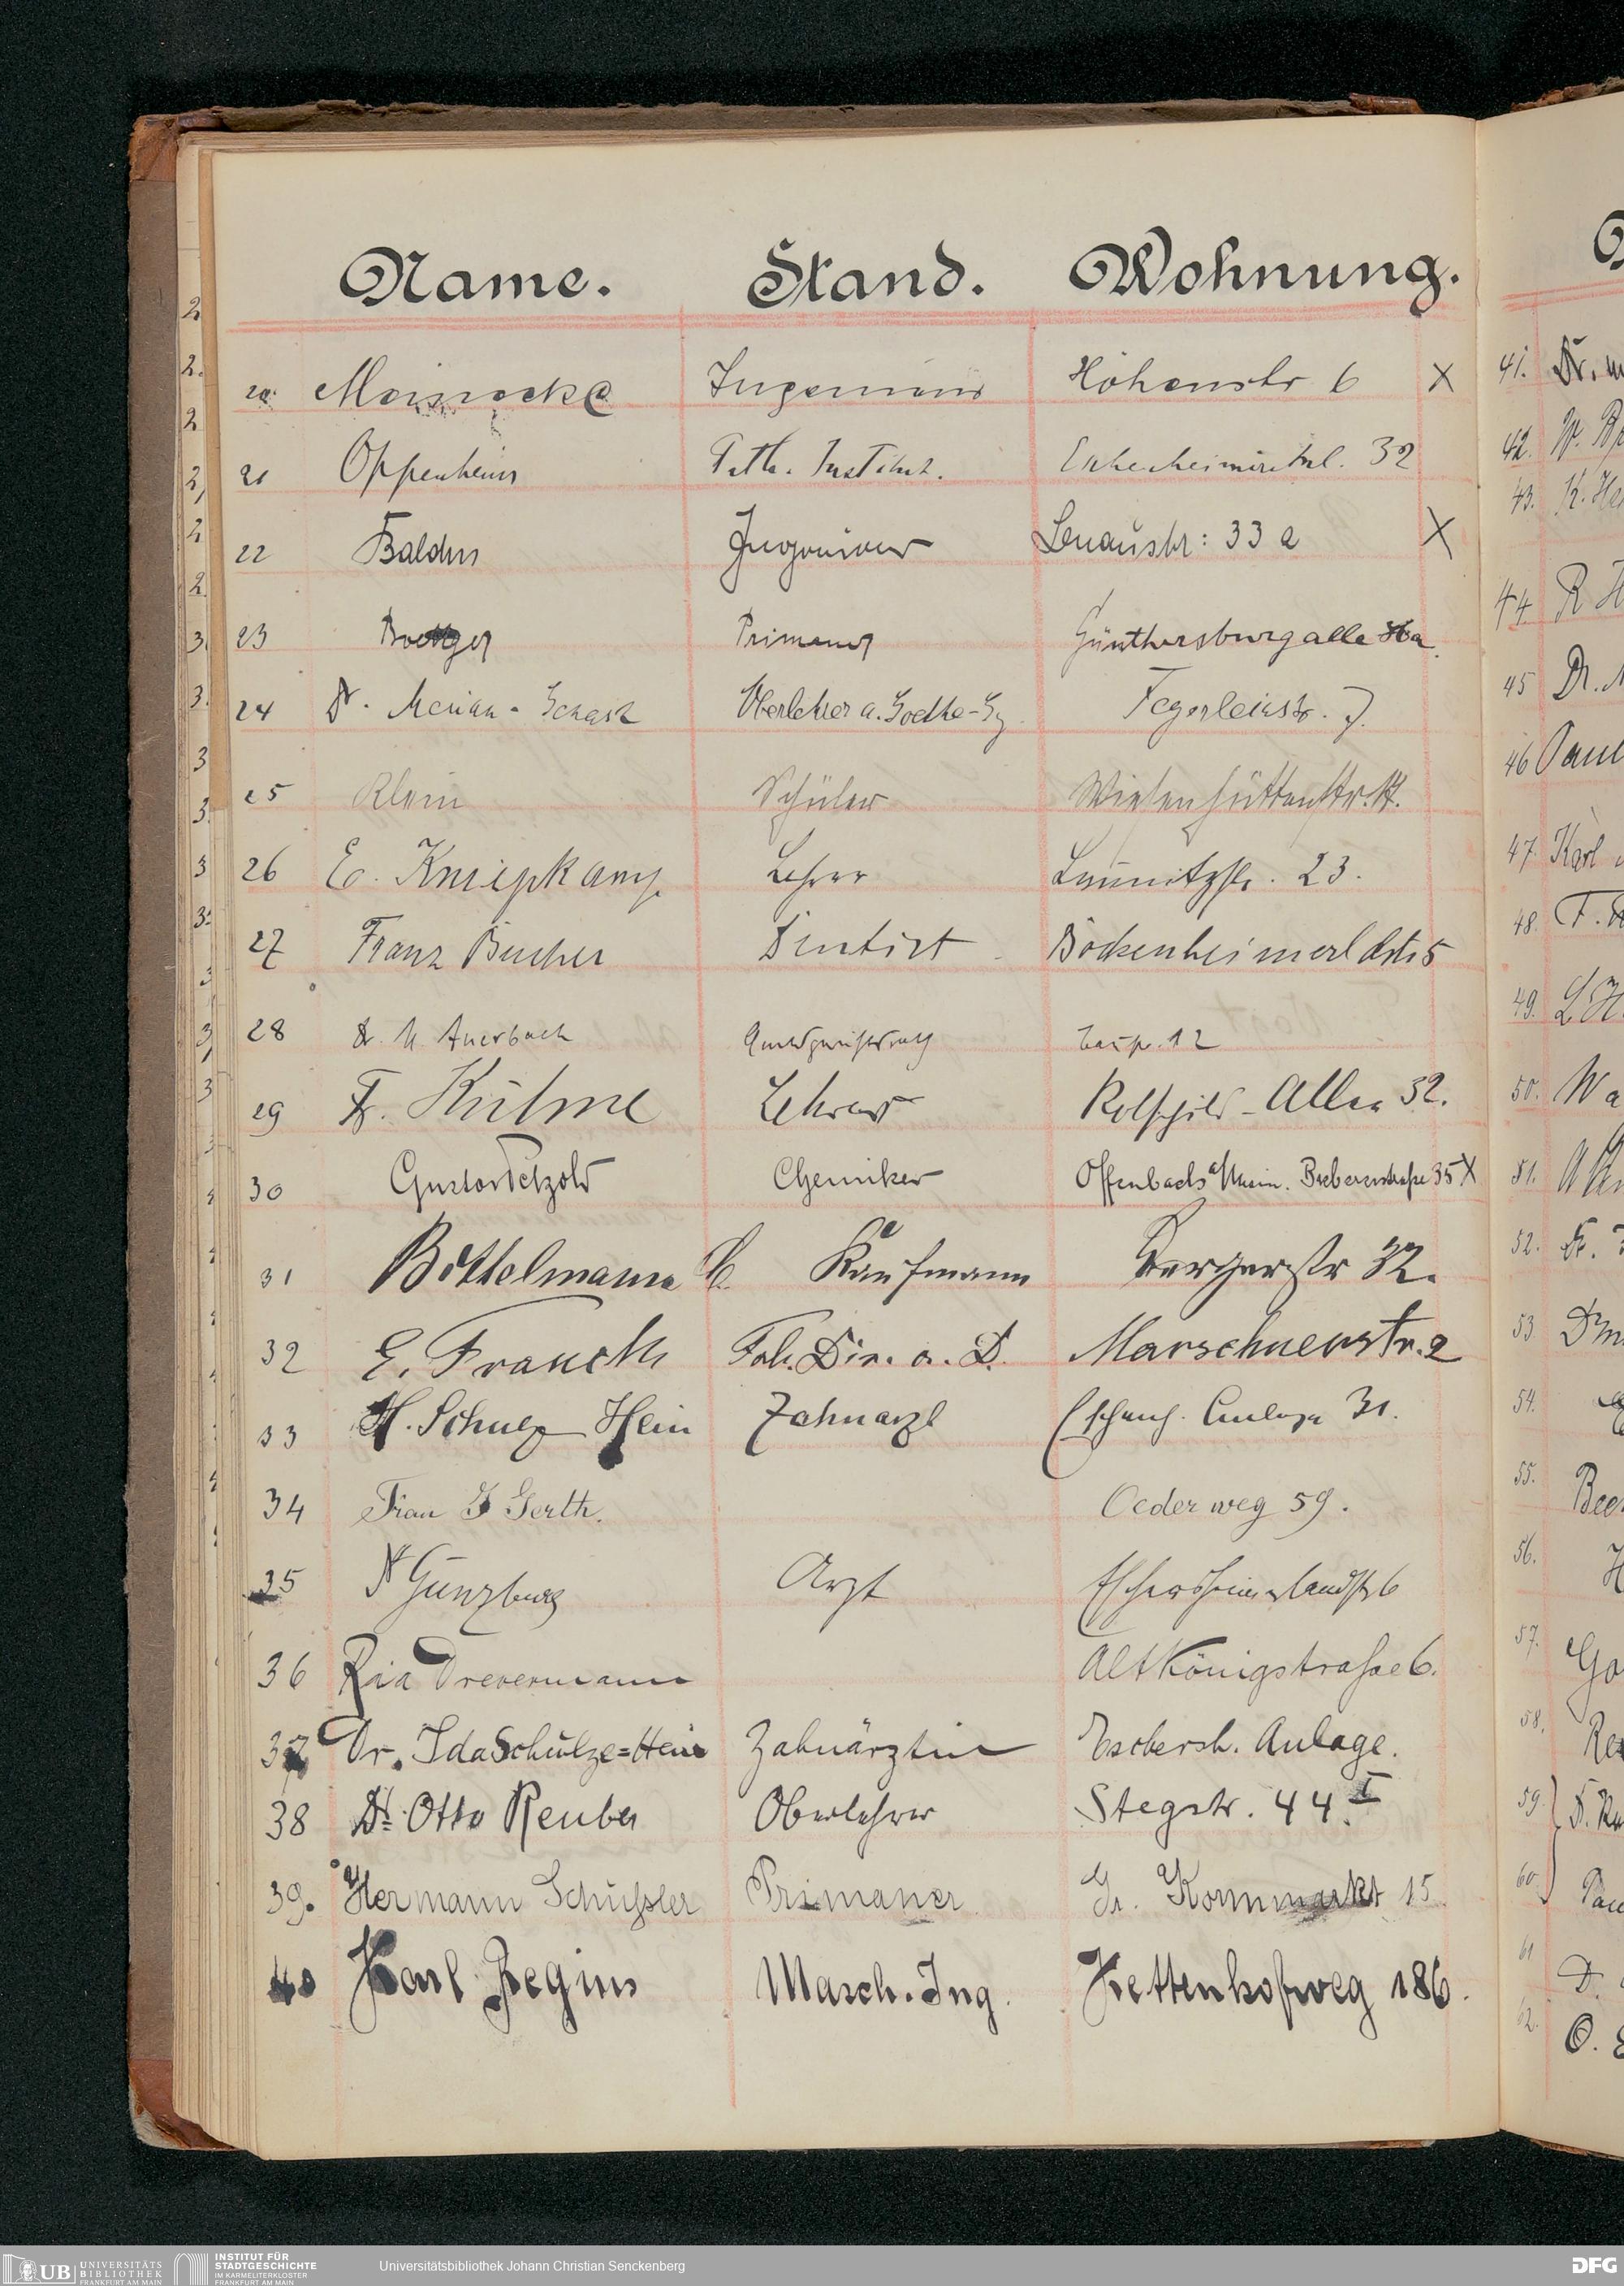 Name. Stand. Wohnung.
20. Meinecke Ingenieur Höhenstr 6 X
21 Oppenheim Path. Institut. 32
22 Baldus Ingenieur Lenaustr: 33 a X
23 Boettger Primaner Günthersburgallee
24 Dr. Merian-Genast Oberlehrer a. Goethe-Gy Fegerleinstr. 7.
25 Klein Schüler Wiesenhüttenstr.
26 E. Kniepkamp. Lehrer Launitzstr. 23.
27 Franz Bucher Dentist Bockenheimerldstr 5
28 Dr. M. Auerbach Amtsgerichtsrath 12
29 Fr. Kühne Lehrer Rothschild-Allee 52.
30 Gustav Petzold Chemiker Offenbach a/Main. Biebererstraße 35 X
31 Bottelmann C. Kaufmann Bergerstr 32.
32 E. Franck Fab. Dir. a. D. Marschnerstr. 2
33 H. Schulze Hein Zahnarzt Eschenh. Anlage 31.
34 Frau J Gerth. Oederweg 59.
35 Dr Günzburg Arzt Eschersheimerlandstr 6
36 Ria Drevermann Altkönigstraße 6.
37 Dr. Ida Schulze=Hein Zahnärztin Eschersh. Anlage.
38 Dr. Otto Reuber Oberlehrer Stegstr. 44. I
39. Hermann Schüßler Primaner Gr. Kornmarkt 15
40 Karl Regius Masch. Ing. Kettenhofweg 186.
41. Dr.
42.
43. K.
44. R
45 Dr.
46
47 Karl
48.
49.
50. Wa
51.
52.
53
54.
55.
56.
57. Go
58.
59.
60.
61
62. O.
UB UNIVERSITÄTS BIBLIOTHEK FRANKFURT AM MAIN
INSTITUT FÜR STADTGESCHICHTE IM KARMELITERKLOSTER FRANKFURT AM MAIN
Universitätsbibliothek Johann Christian Senckenberg
DFG